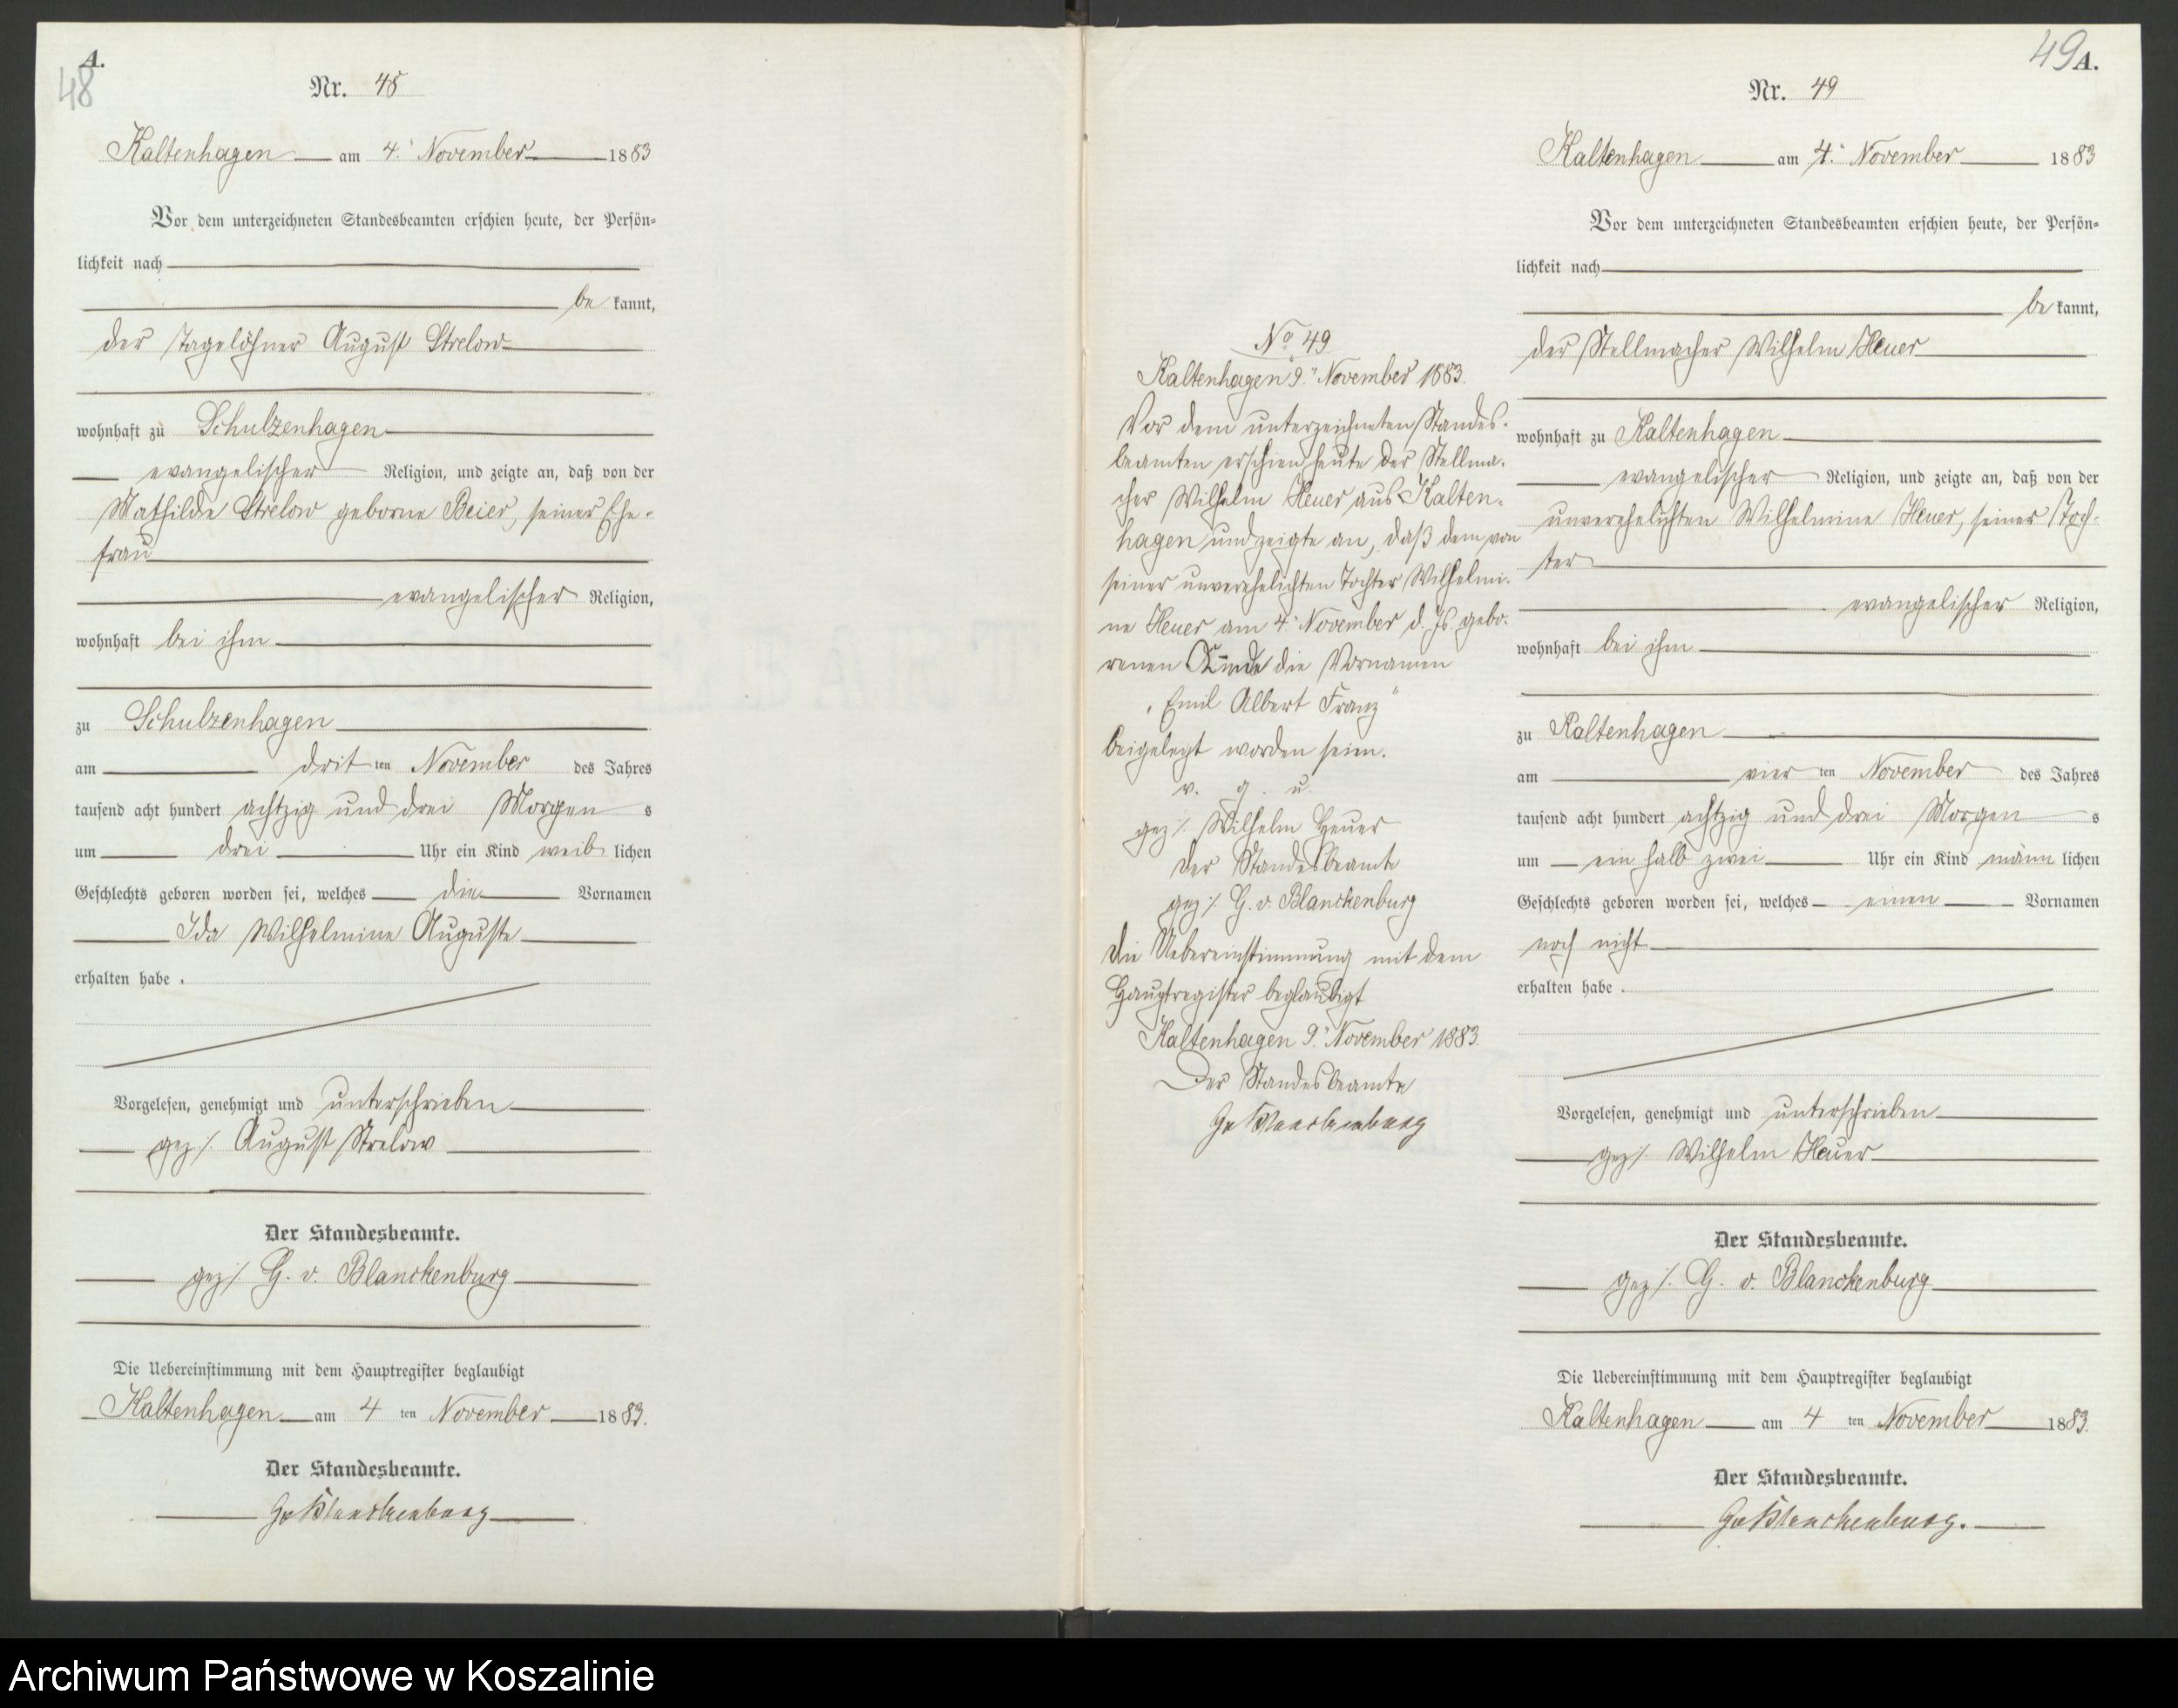 A.
48
Nr. 48
Kaltenhagen am 4. November 1883
Vor dem unterzeichneten Standesbeamten erschien heute, der Persön=
lichkeit nach
be kannt,
der Tagelöhner August Strelow
wohnhaft zu Schulzenhagen
evangelischer Religion, und zeigte an, daß von der
Mathilde Strelow geborne Beier, seiner Ehe-
frau
evangelischer Religion,
wohnhaft bei ihm
zu Schulzenhagen
am drit ten November des Jahres
tausend acht hundert achtzig und drei Morgen s
um drei Uhr ein Kind weib lichen
Geschlechts geboren worden sei, welches die Vornamen
Ida Wilhelmine Auguste
erhalten habe.
Vorgelesen, genehmigt und unterschrieben
gez /. August Strelow
Der Standesbeamte.
gez /. G. v. Blanckenburg
Die Uebereinstimmung mit dem Hauptregister beglaubigt
Kaltenhagen am 4 ten November 1883.
Der Standesbeamte.
Gv Blanckenburg
No 49
Kaltenhagen 9. November 1883.
Vor dem unterzeichneten Standes-
beamten erschien heute der Stellma-
cher Wilhelm Heuer aus Kalten-
hagen und zeigte an, daß dem von
seiner unverehelichten Tochter Wilhelmi-
ne Heuer am 4. November d. Js gebo-
renen Kinde die Vornamen
"Emil Albert Franz"
beigelegt worden seien.
v. g. u.
gez /. Wilhelm Heuer
der Standesbeamte
gez /. G. v. Blanckenburg
Die Uebereinstimmung mit dem
Hauptregister beglaubigt
Kaltenhagen 9. November 1883.
Der Standesbeamte
Gv Blanckenburg
49 A.
Nr. 49
Kaltenhagen am 4. November 1883
Vor dem unterzeichneten Standesbeamten erschien heute, der Persön=
lichkeit nach
be kannt,
der Stellmacher Wilhelm Heuer
wohnhaft zu Kaltenhagen
evangelischer Religion, und zeigte an, daß von der
unverehelichten Wilhelmine Heuer, seiner Toch-
ter
evangelischer Religion,
wohnhaft bei ihm
zu Kaltenhagen
am vier ten November des Jahres
tausend acht hundert achtzig und drei Morgen s
um ein halb zwei Uhr ein Kind männ lichen
Geschlechts geboren worden sei, welches einen Vornamen
noch nicht
erhalten habe.
Vorgelesen, genehmigt und unterschrieben
gez /. Wilhelm Heuer
Der Standesbeamte.
gez /. G. v. Blanckenburg
Die Uebereinstimmung mit dem Hauptregister beglaubigt
Kaltenhagen am 4 ten November 1883.
Der Standesbeamte.
Gv Blanckenburg.
Archiwum Państwowe w Koszalinie